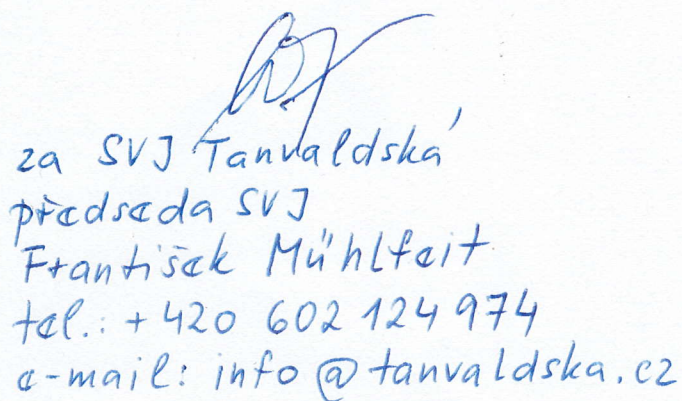 za SVJ Tanvaldská
předseda SVJ
František Mühlfeit
tel.: +420 602 124 974
e-mail: info@tanvaldska.cz